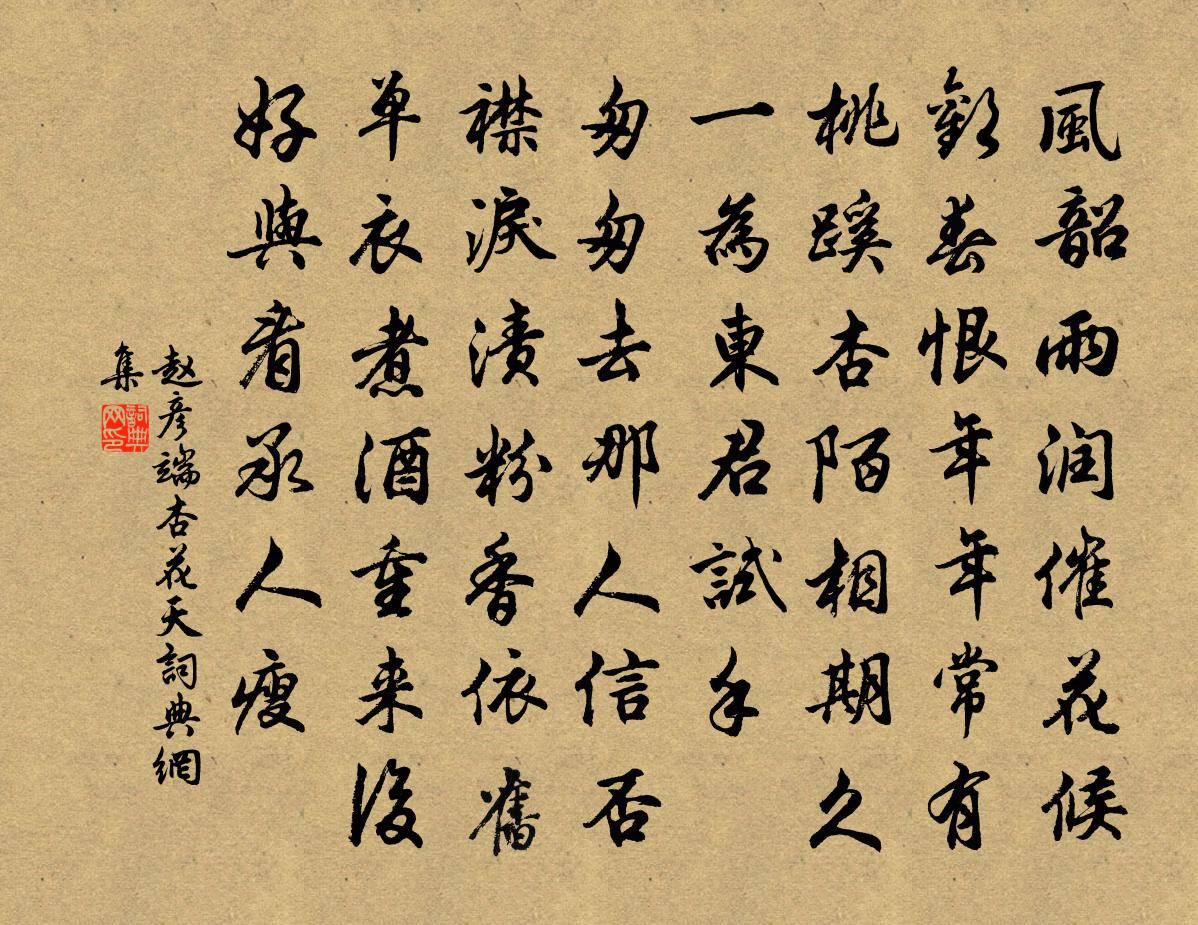 風韶雨润催花候
春恨年年常有
桃蹊杏陌相期久
一為東君試手
匆匆去那人信否
襟淚漬粉香依舊
单衣煮酒重来後
好與看承人瘦
赵彦端杏花天詞典網
集
詞典
网印